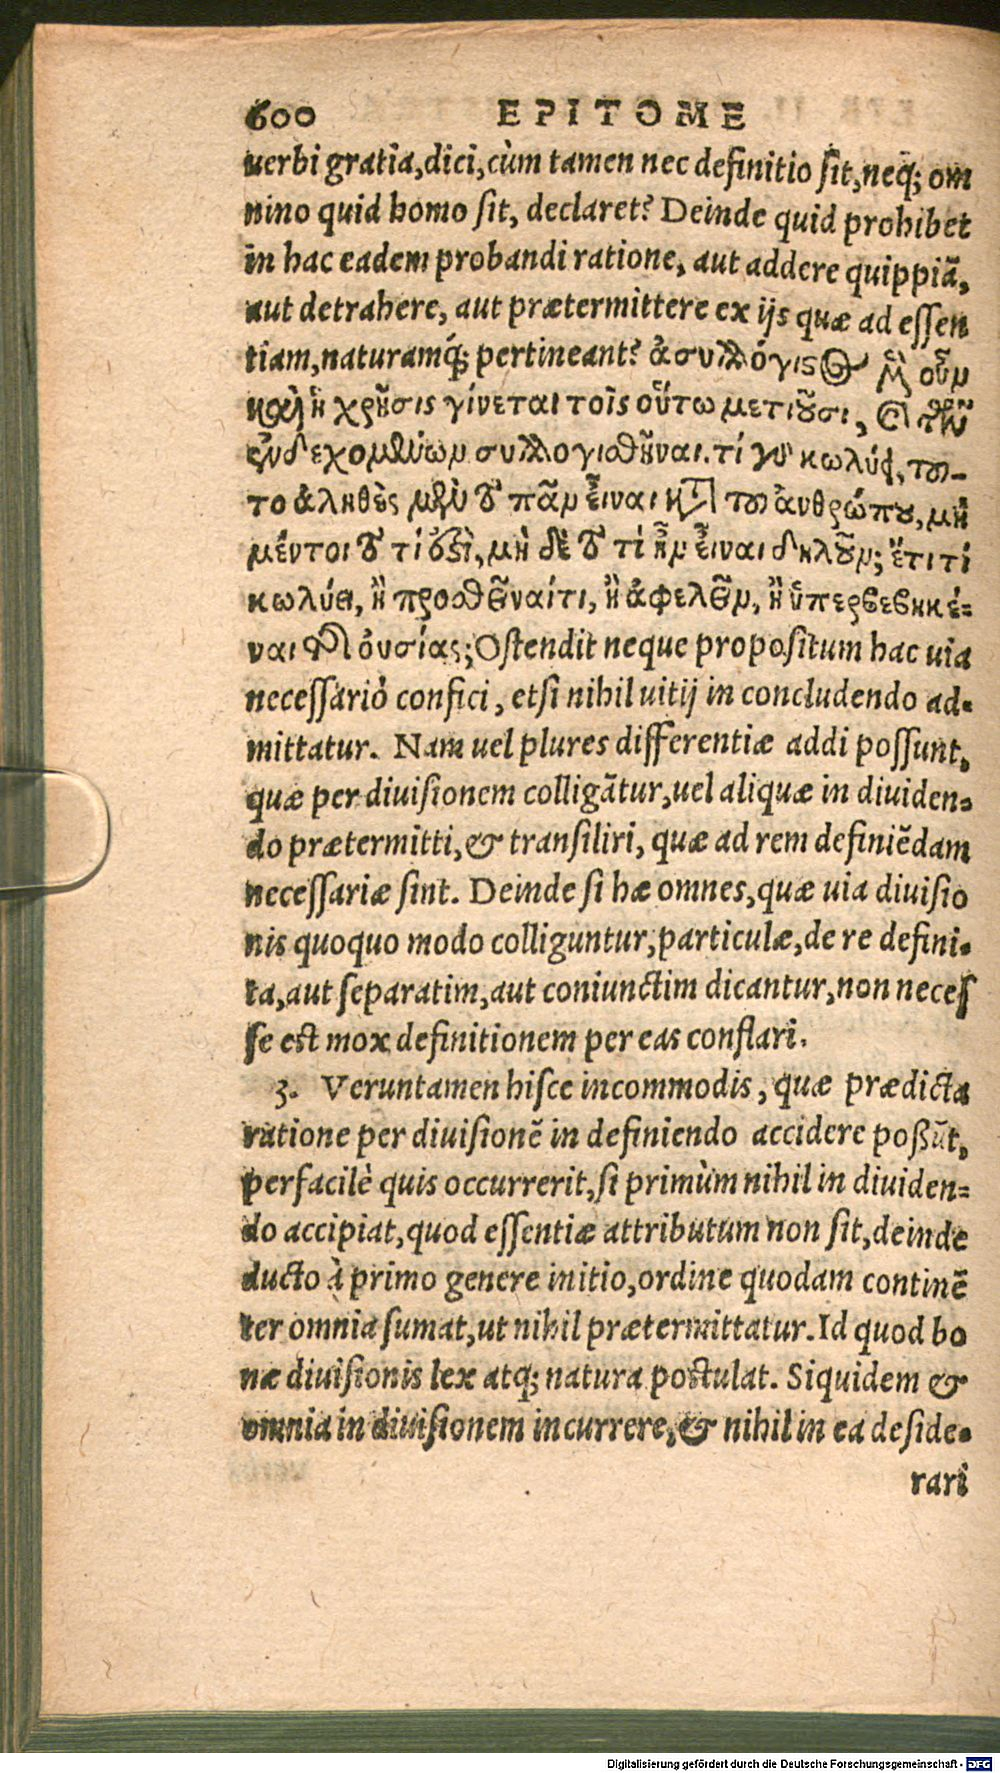 600 EPITOME
uerbi gratia, dici, cùm tamen nec definitio sit, neq; om
nino quid homo sit, declaret? Deinde quid prohibet
in hac eadem probandi ratione, aut addere quippiã,
aut detrahere, aut prætermittere ex ijs quæ ad essen
tiam, naturamq́; pertineant? ἀσυλλόγιστος μὲν οὖν
καὶ ἡ χρῆσις γίνεται τοῖς οὕτω μετιοῦσι, καὶ τῶν
ἐνδεχομένων συλλογισθῆναι. τί γὰρ κωλύει, τοῦ-
το ἀληθὲς μὲν τὸ πᾶν εἶναι κατὰ τοῦ ἀνθρώπου, μὴ
μέντοι τὸ τί ἐστὶ, μὴ δὲ τὸ τί ἦν εἶναι δηλοῦν; ἔτι τί
κωλύει, ἢ προσθεῖναί τι, ἢ ἀφελεῖν, ἢ ὑπερβεβηκέ-
ναι τῆς οὐσίας; Ostendit neque propositum hac uia
necessariò confici, etsi nihil uitij in concludendo ad-
mittatur. Nam uel plures differentiæ addi possunt,
quæ per diuisionem colligãtur, uel aliquæ in diuiden-
do prætermitti, & transiliri, quæ ad rem definiẽdam
necessariæ sint. Deinde si hæ omnes, quæ uia diuisio
nis quoquo modo colliguntur, particulæ, de re defini-
ta, aut separatim, aut coniunctim dicantur, non neces
se est mox definitionem per eas conflari.
3. Veruntamen hisce incommodis, quæ prædicta
ratione per diuisionẽ in definiendo accidere poßũt,
perfacilè quis occurrerit, si primùm nihil in diuiden-
do accipiat, quod essentiæ attributum non sit, deinde
ducto à primo genere initio, ordine quodam continẽ
ter omnia sumat, ut nihil prætermittatur. Id quod bo
næ diuisionis lex atq; natura postulat. Siquidem &
omnia in diuisionem incurrere, & nihil in ea deside-
rari
Digitalisierung gefördert durch die Deutsche Forschungsgemeinschaft - DFG